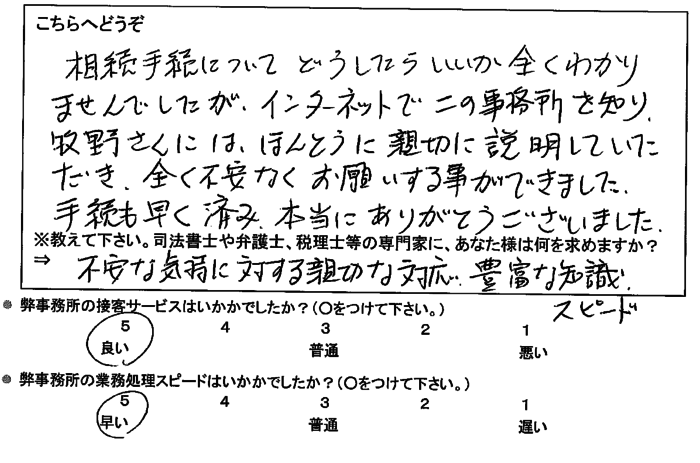 こちらへどうぞ
相続手続について どうしたらいいか全くわかり
ませんでしたが、インターネットでこの事務所を知り、
牧野さんには、ほんとうに親切に説明していた
だき、全く不安なくお願いする事ができました。
手続も早く済み、本当にありがとうございました。
※教えて下さい。司法書士や弁護士、税理士等の専門家に、あなた様は何を求めますか？
⇒ 不安な気持に対する親切な対応、豊富な知識、
スピード
● 弊事務所の接客サービスはいかかでしたか？（○をつけて下さい。）
5 4 3 2 1
良い 普通 悪い
● 弊事務所の業務処理スピードはいかかでしたか？（○をつけて下さい。）
5 4 3 2 1
早い 普通 遅い